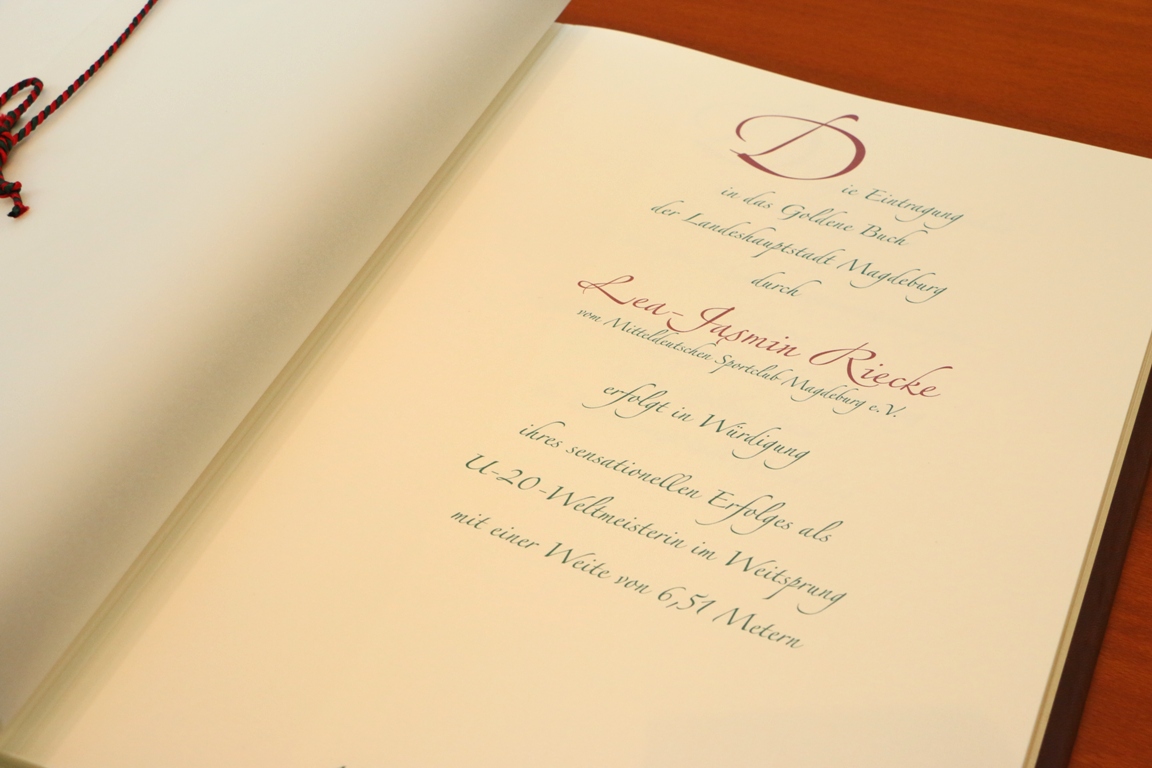 Die Eintragung
in das Goldene Buch
der Landeshauptstadt Magdeburg
durch
Lea-Jasmin Riecke
vom Mitteldeutschen Sportclub Magdeburg e.V.
erfolgt in Würdigung
ihres sensationellen Erfolges als
U-20-Weltmeisterin im Weitsprung
mit einer Weite von 6,51 Metern